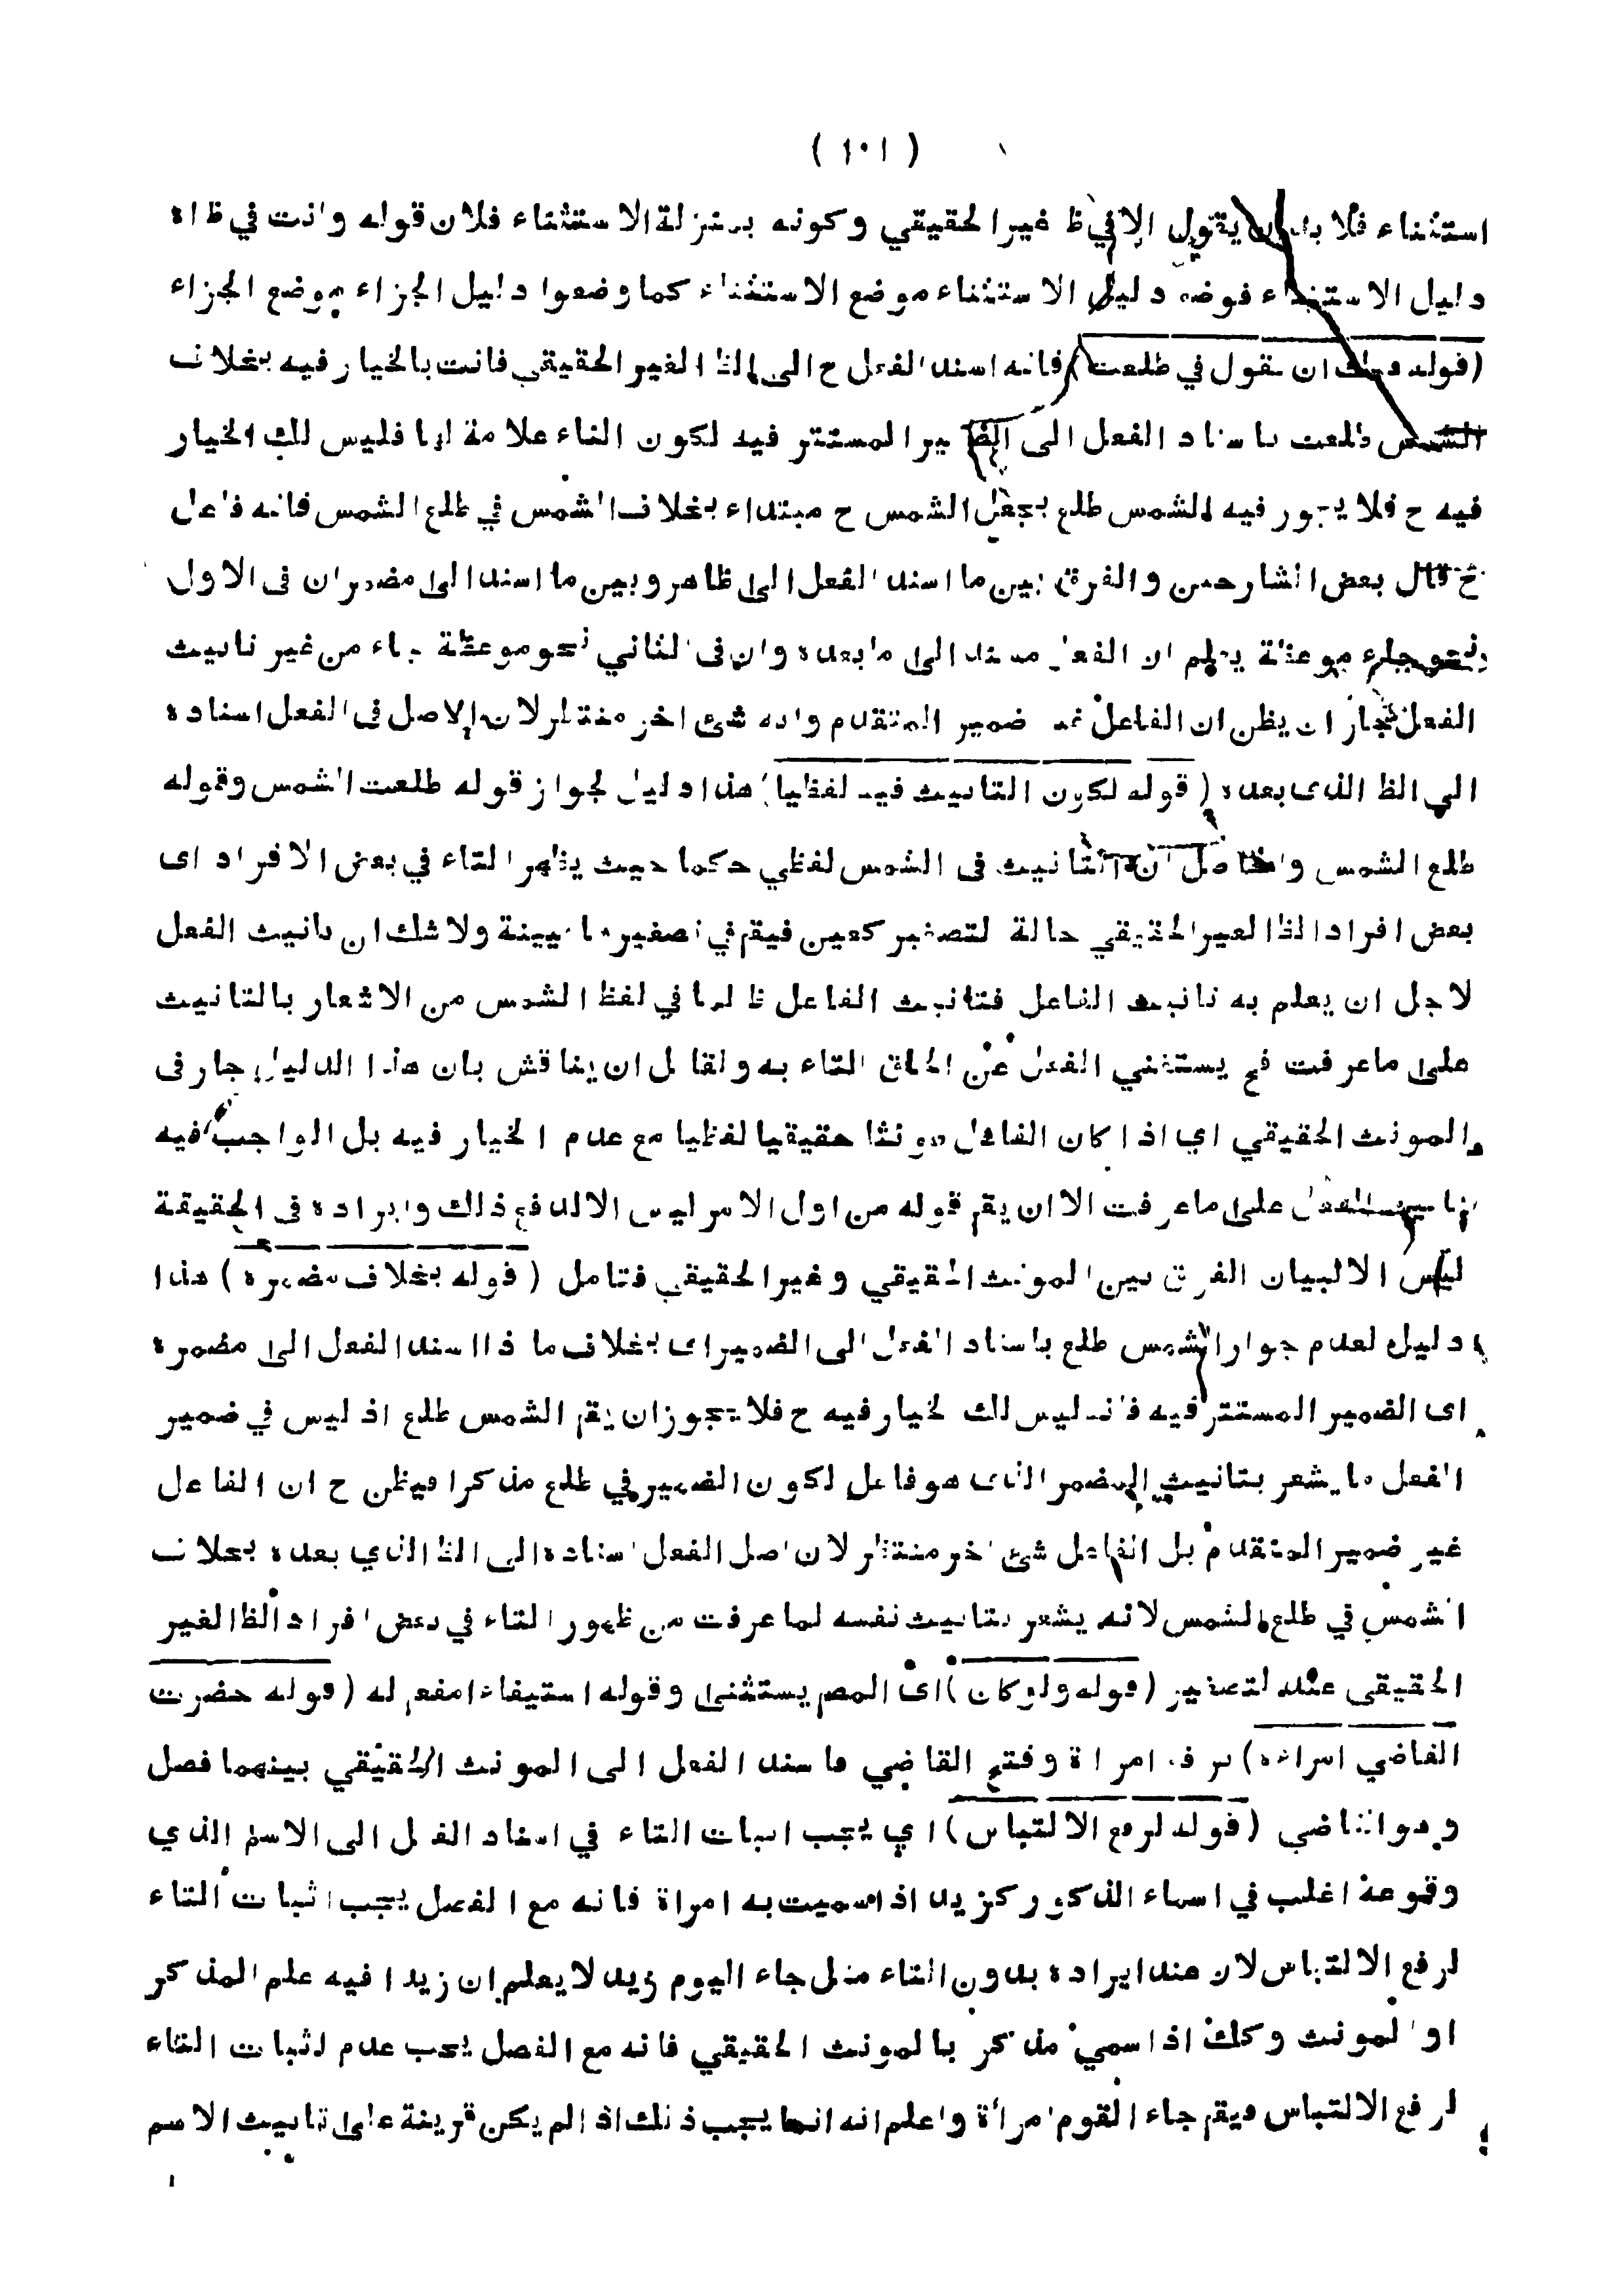 ( ١٠١ )
استثناء فلا بد ان يقول الا في ظ غير الحقيقي وكونه بمنزلة الاستثناء فلان قوله وانت في ظاه
دليل الاستثناء فوضع دليل الاستثناء موضع الاستثناء كما وضعوا دليل الجزاء موضع الجزاء
(قوله ولك ان تقول في طلعت) فانه اسند الفعل ح الى الظ الغير الحقيقي فانت بالخيار فيه بخلاف
الشمس طلعت باسناد الفعل الى الضمير المستتر فيه لكون التاء علامة لها فليس لك الخيار
فيه ح فلا يجوز فيه الشمس طلع بجعل الشمس ح مبتداء بخلاف الشمس في طلع الشمس فانه فاعل
ح قال بعض الشارحين والفرق بين ما اسند الفعل الى ظاهر وبين ما اسند الى مضمر ان فى الاول
نحو جاء موعظة يعلم ان الفعل مسند الى ما بعده وان فى الثاني نحو موعظة جاء من غير تانيث
الفعل جاز ان يظن ان الفاعل غير ضمير المتقدم وانه شئ اخر منتظر لان الاصل فى الفعل اسناده
الى الظ الذى بعده (قوله لكون التانيث فيه لفظيا) هذا دليل لجواز قوله طلعت الشمس وقوله
طلع الشمس والحاصل ان التانيث فى الشمس لفظي حكما حيث يظهر التاء في بعض الافراد اى
بعض افراد الظ الغير الحقيقي حالة التصغير كعين فيقم في تصغيرها عيينة ولا شك ان تانيث الفعل
لاجل ان يعلم به تانيث الفاعل فتانيث الفاعل ظ لما في لفظ الشمس من الاشعار بالتانيث
على ما عرفت فح يستغني الفعل عن الحاق التاء به ولقائل ان يناقش بان هذا الدليل جار فى
المونث الحقيقي اي اذا كان الفاعل مونثا حقيقيا لفظيا مع عدم الخيار فيه بل الواجب فيه
تانيث الفعل على ما عرفت الا ان يقم قوله من اول الامر ليس الا لدفع ذلك وايراده فى الحقيقة
ليس الا لبيان الفرق بين المونث الحقيقي وغير الحقيقي فتامل (قوله بخلاف مضمره) هذا
دليل لعدم جواز الشمس طلع باسناد الفعل الى الضمير اى بخلاف ما اذا اسند الفعل الى مضمره
اى الضمير المستتر فيه فانه ليس لك الخيار فيه ح فلا يجوز ان يقم الشمس طلع اذ ليس في ضمير
الفعل ما يشعر بتانيث المضمر الذى هو فاعل لكون الضمير في طلع مذكرا فيظن ح ان الفاعل
غير ضمير المتقدم بل الفاعل شئ اخر منتظر لان اصل الفعل اسناده الى الظ الذي بعده بخلاف
الشمس في طلع الشمس لانه يشعر بتانيث نفسه لما عرفت من ظهور التاء في بعض افراد الظ الغير
الحقيقى عند التصغير (قوله ولو كان) اى المصم يستثنى وقوله استيفاء مفعم له (قوله حضرت
القاضي امراءة) برفع امراة وفتح القاضي فاسند الفعل الى المونث الحقيقي بينهما فصل
وهو القاضي (قوله لرفع الالتباس) اي يجب اثبات التاء في اسناد الفعل الى الاسم الذي
وقوعه اغلب في اسماء الذكور كزيد اذا سميت به امراة فانه مع الفصل يجب اثبات التاء
لرفع الالتباس لان عند ايراده بدون التاء مثل جاء اليوم زيد لا يعلم ان زيدا فيه علم المذكر
او المونث وكك اذا سمي مذكر بالمونث الحقيقي فانه مع الفصل يجب عدم اثبات التاء
لرفع الالتباس فيقم جاء القوم امراة واعلم انه انما يجب ذلك اذا لم يكن قرينة على تانيث الاسم